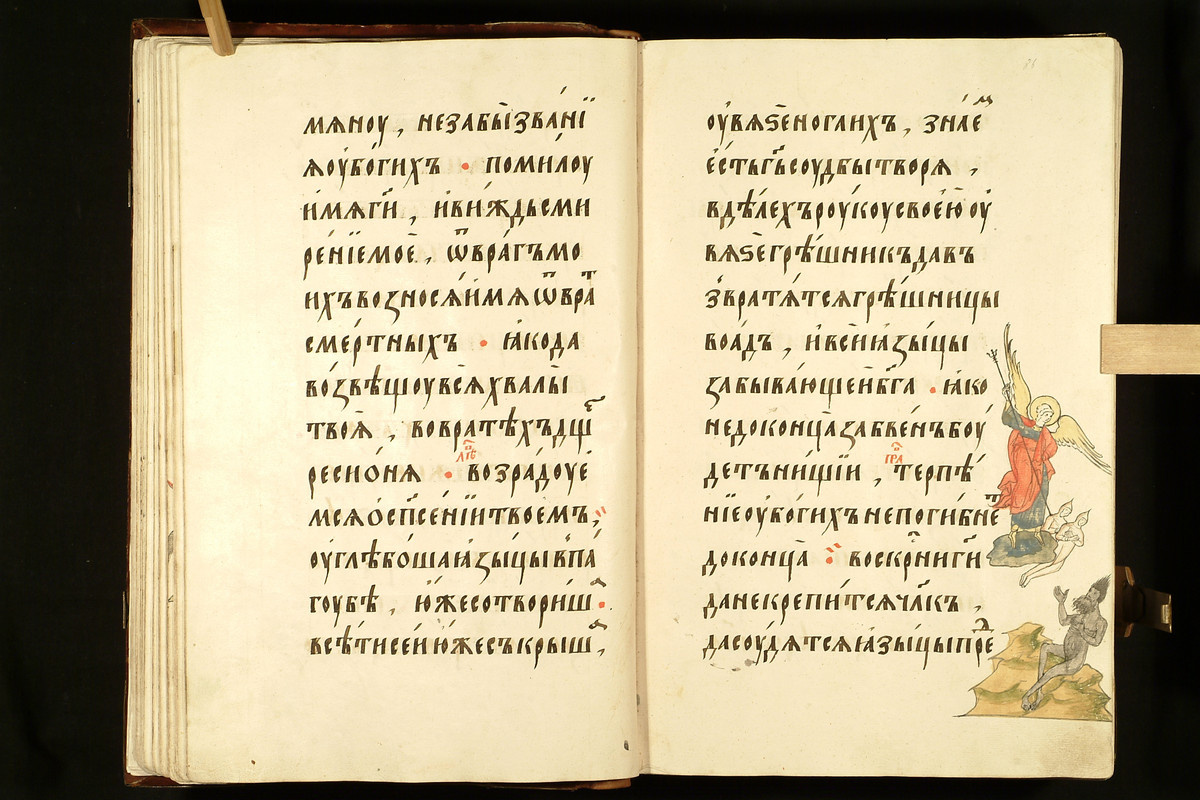 мѧноу , незабы̀зва́нїꙗ
ѧоу҆бо́гихъ · поми́лоу
и҆мѧгⷭ҇и , и҆ви́ждьсми
ре́нїемоѐ , ѿвра́гъмо
ихъвоꙁносѧ́и҆мѧѿвра́ᵀ
сме́ртныхъ · ꙗ҆кода
во́звѣщоувсѧ̀хвалы̀
твоѧ̀ , вовратѣ́хъдщⷺ҇
ресио́нѧ · воз̾ра́доуе
мсѧѻ҆сп҃се́нїитвоемъ ,
оу҆глѣбо́шаꙗ҆ꙁы́цывпа́
гоубѣ , ю҆́жесотвориш .
всѣ́тисе́йю҆́жесъкрыш ,
31
оу҆вѧѕѐногаихъ , зна́еᵐ
е҆́стьгⷭ҇ьсоудбытворѧ ,
вдѣ́лехъроукоусвоѐю оу҆
вѧѕѐгрѣ́шникъдавъ
звратѧ́тсѧгрѣ́шницы
воа́дъ , и҆всѝꙗ҆ꙁы́цы
ꙁабыва́ющеиб҃га · ꙗ҆ко
недоконца̀ꙁабве́нъбоу́
детъни́щїи , терпѣ́
нїеоу҆бо́гихънепоги́бнеᵀ
доконца̀ воскр҇нигⷭ҇и
данекрепи́тсѧчл҃къ ,
дасоу́дѧтсѧꙗ҆зы́цыпреⷣ